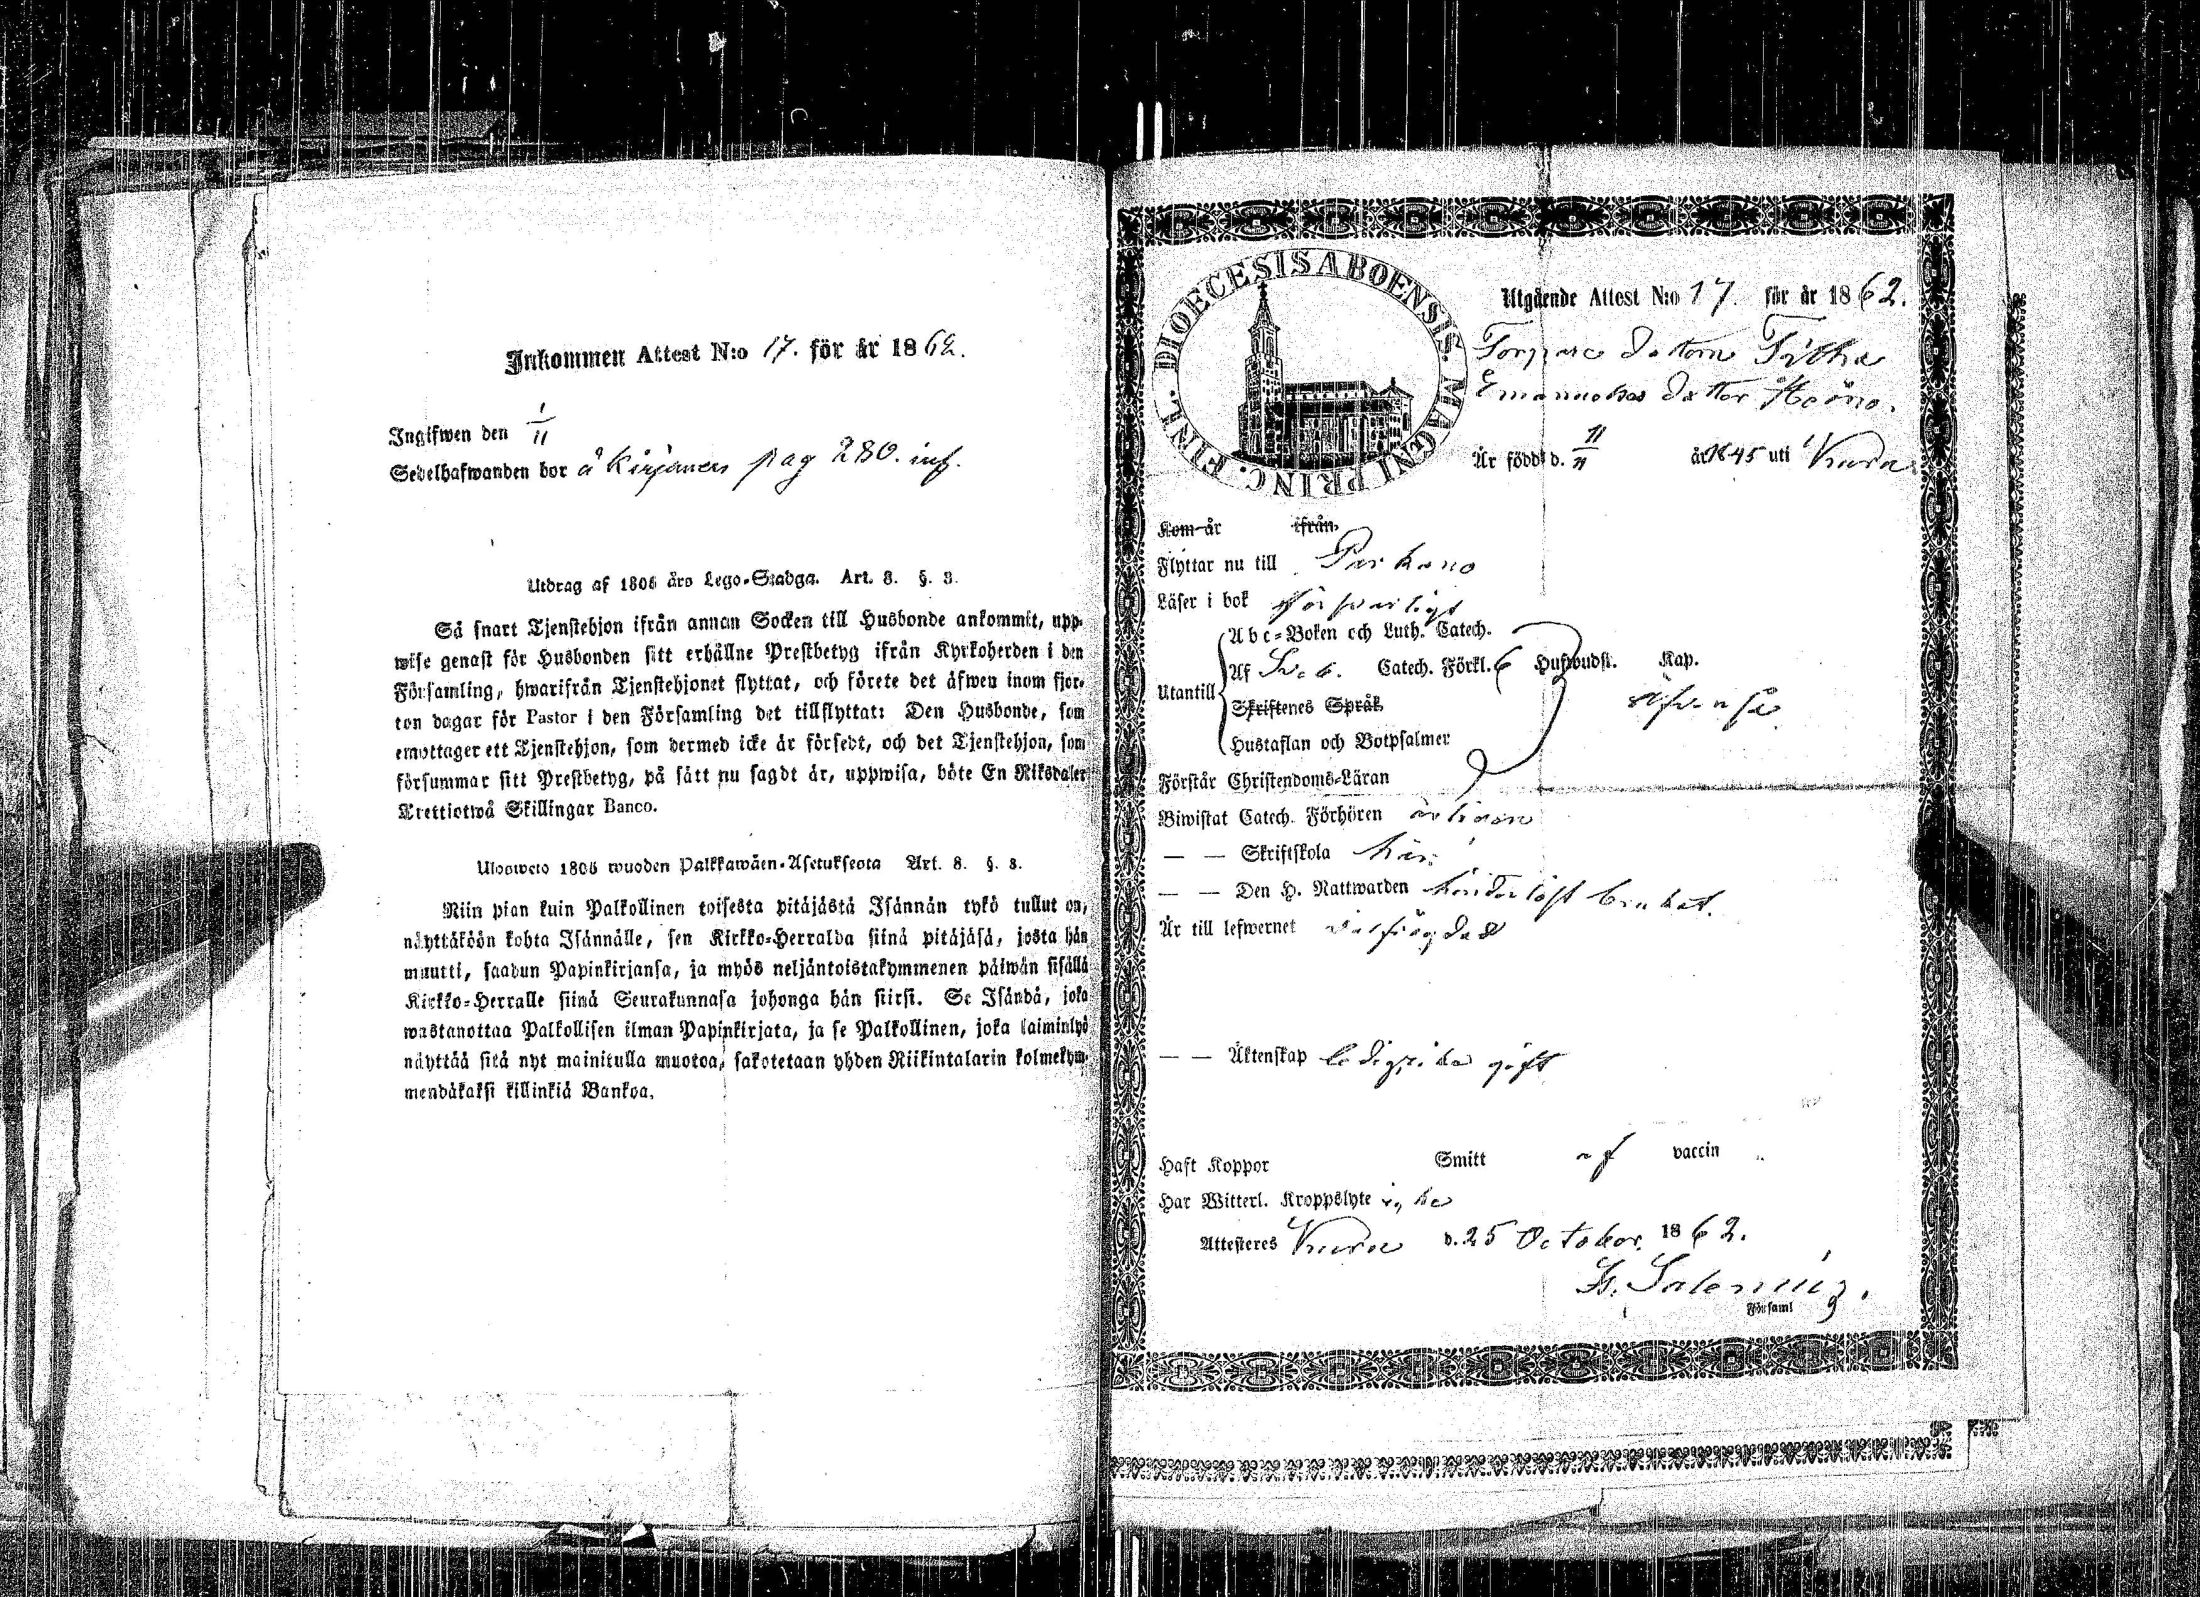 Inkommen Attest N:o 17. för år 1862.
Ingifwen den 1/11
Sedelhafwanden bor å Kirjanen pag 280. inf.
Utdrag af 1805 års Lego-Stadga. Art. 8. §. 8.
Så snart Tjenstehjon ifrån annan Socken till Husbonde ankommit, upp-
wise genast för Husbonden sitt erhållne Prestbetyg ifrån Kyrkoherden i den
Församling, hwarifrån Tjenstehjonet flyttat, och förete det äfwen inom fjor-
ton dagar för Pastor i den Församling det tillflyttat: Den Husbonde, som
emottager ett Tjenstehjon, som dermed icke är försedt, och det Tjenstehjon, som
försummar sitt Prestbetyg, på sätt nu sagdt är, uppwisa, böte En Riksdaler
Trettiotwå Skillingar Banco.
Ulosweto 1805 wuoden Palkkawäen-Asetuksesta Art. 8. §. 8.
Niin pian kuin Palkollinen toisesta pitäjästä Isännän tykö tullut on,
näyttäköön kohta Isännälle, sen Kirkko-Herralda siinä pitäjäsä, josta hän
muutti, saadun Papinkirjansa, ja myös neljäntoistakymmenen päiwän sisällä
Kirkko-Herralle siinä Seurakunnasa johonga hän siirsi. Se Isändä, joka
wastanottaa Palkollisen ilman Papinkirjata, ja se Palkollinen, joka laiminlyö
näyttää sitä nyt mainitulla muotoa, sakotetaan yhden Riikintalarin kolmekym-
mendäkaksi killinkiä Bankoa.
DIOECESIS ABOENSIS. MAGNI PRINC. FINL.
Utgående Attest N:o 17 för år 1862.
Torpare Dottern
Emanuelsdotter
Är född d. 11/11 år 1845 uti
Kom år ifrån
Flyttar nu till Parkano
Läser i bok försvarligt
Utantill
Abc-Boken och Luth. Catech.
Af Catech. Förkl. 6 Hufwudst. Kap.
Skriftenes Språk
Hustaflan och Botpsalmer
Förstår Christendoms-Läran
Biwistat Catech. Förhören
— — Skriftskola här.
— — Den H. Nattwarden
Är till lefwernet
— — Äktenskap
Haft Koppor Smitt af vaccin
Har Witterl. Kroppslyte
Attesteres d. 25 October 1862.
Församl